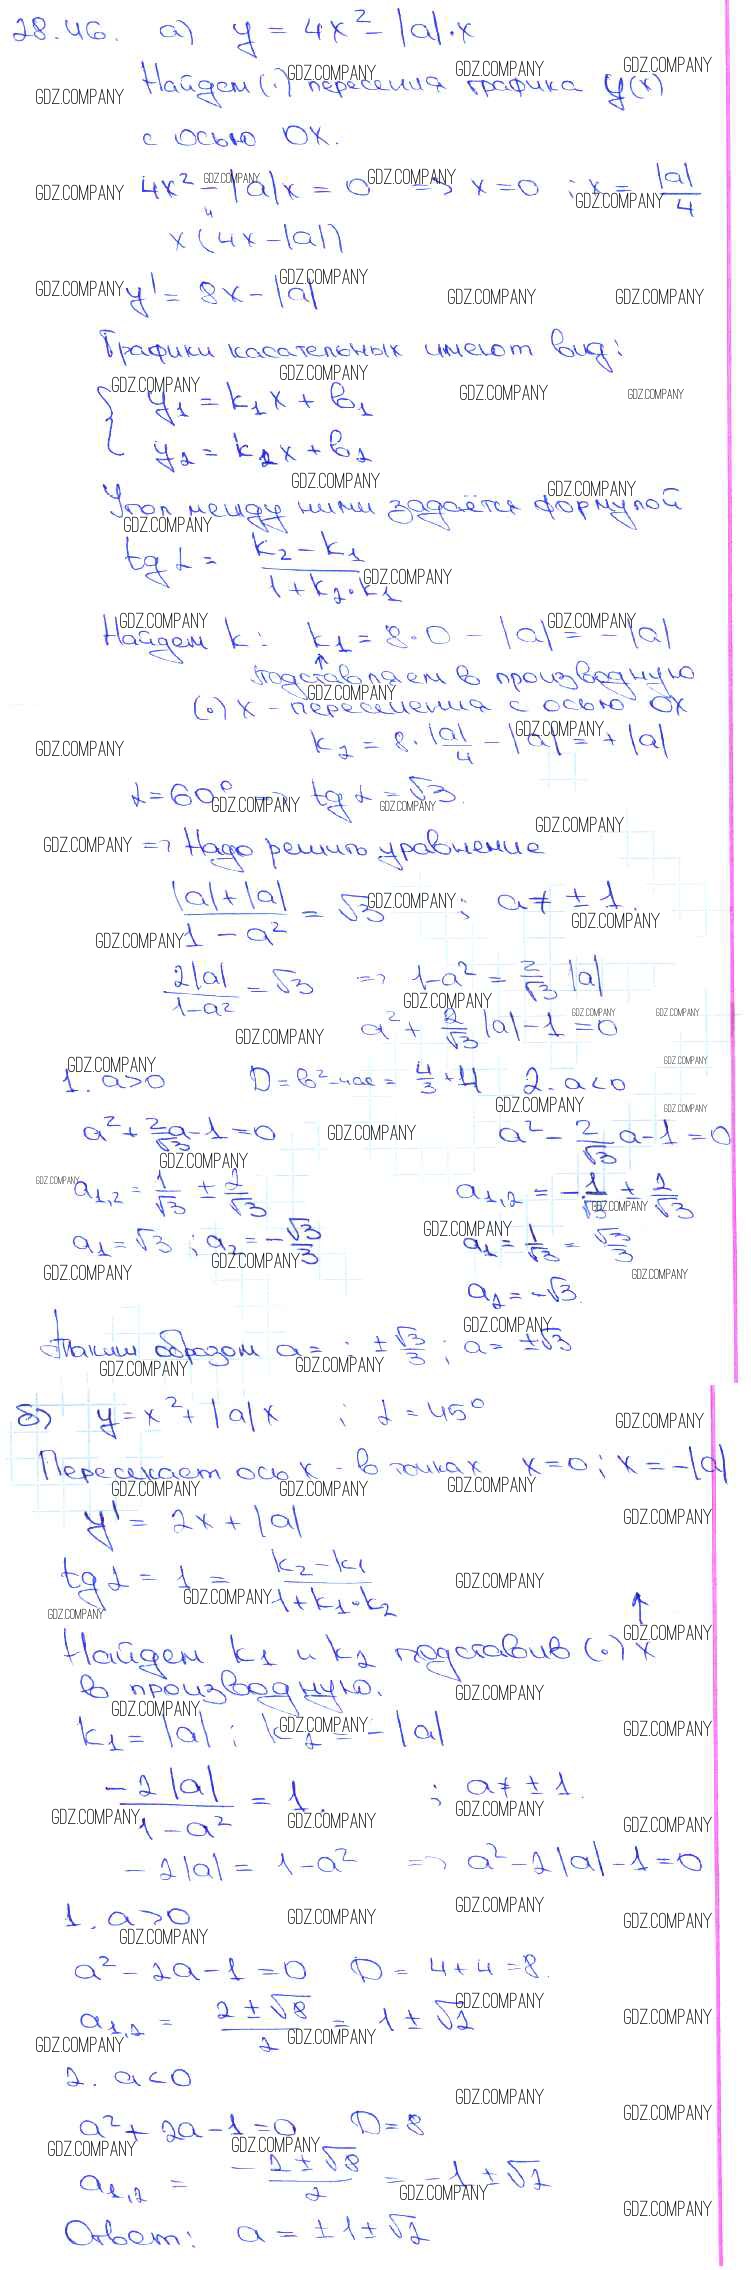 28.46. а) y = 4x² - |a|·x
Найдем (·) пересения графика y(x)
с осью OX.
4x² - |a|x = 0 => x = 0 ; x = |a|/4
x(4x - |a|)
y' = 8x - |a|
Графики касательных имеют вид:
{ y₁ = k₁x + b₁
y₂ = k₂x + b₂
Угол между ними задаётся формулой
tg α = (k₂ - k₁)/(1 + k₂·k₁)
Найдем k: k₁ = 8·0 - |a| = -|a|
↑ подставляем в производную
(·) x - пересечения с осью OX
k₂ = 8·|a|/4 - |a| = +|a|
α = 60° => tg α = √3.
=> Надо решить уравнение
(|a| + |a|)/(1 - a²) = √3 ; a ≠ ±1.
2|a|/(1-a²) = √3 => 1-a² = 2/√3 |a|
a² + 2/√3 |a| - 1 = 0
1. a>0 D = b²-4ac = 4/3 + 4 2. a<0
a² + 2a/√3 - 1 = 0 a² - 2/√3 a - 1 = 0
a₁,₂ = 1/√3 ± 2/√3 a₁,₂ = -1/√3 ± 2/√3
a₁ = √3 ; a₂ = -√3/3 a₁ = 1/√3 = √3/3
a₂ = -√3.
Таким образом a = ; ± √3/3 ; a = ±√3
б) y = x² + |a|x ; α = 45°
Пересекает ось x - в точках x = 0 ; x = -|a|
y' = 2x + |a|
tg α = 1 = (k₂ - k₁)/(1 + k₁·k₂)
Найдем k₁ и k₂ подставив (·) x
в производную.
k₁ = |a| ; k₂ = -|a|
-2|a|/(1 - a²) = 1. ; a ≠ ±1.
-2|a| = 1 - a² => a² - 2|a| - 1 = 0
1. a>0
a² - 2a - 1 = 0 D = 4 + 4 = 8.
a₁,₂ = (2 ± √8)/2 = 1 ± √2
2. a<0
a² + 2a - 1 = 0 D = 8
a₁,₂ = -(2 ± √8)/2 = -1 ± √2
Ответ: a = ±1 ± √2
GDZ.COMPANY